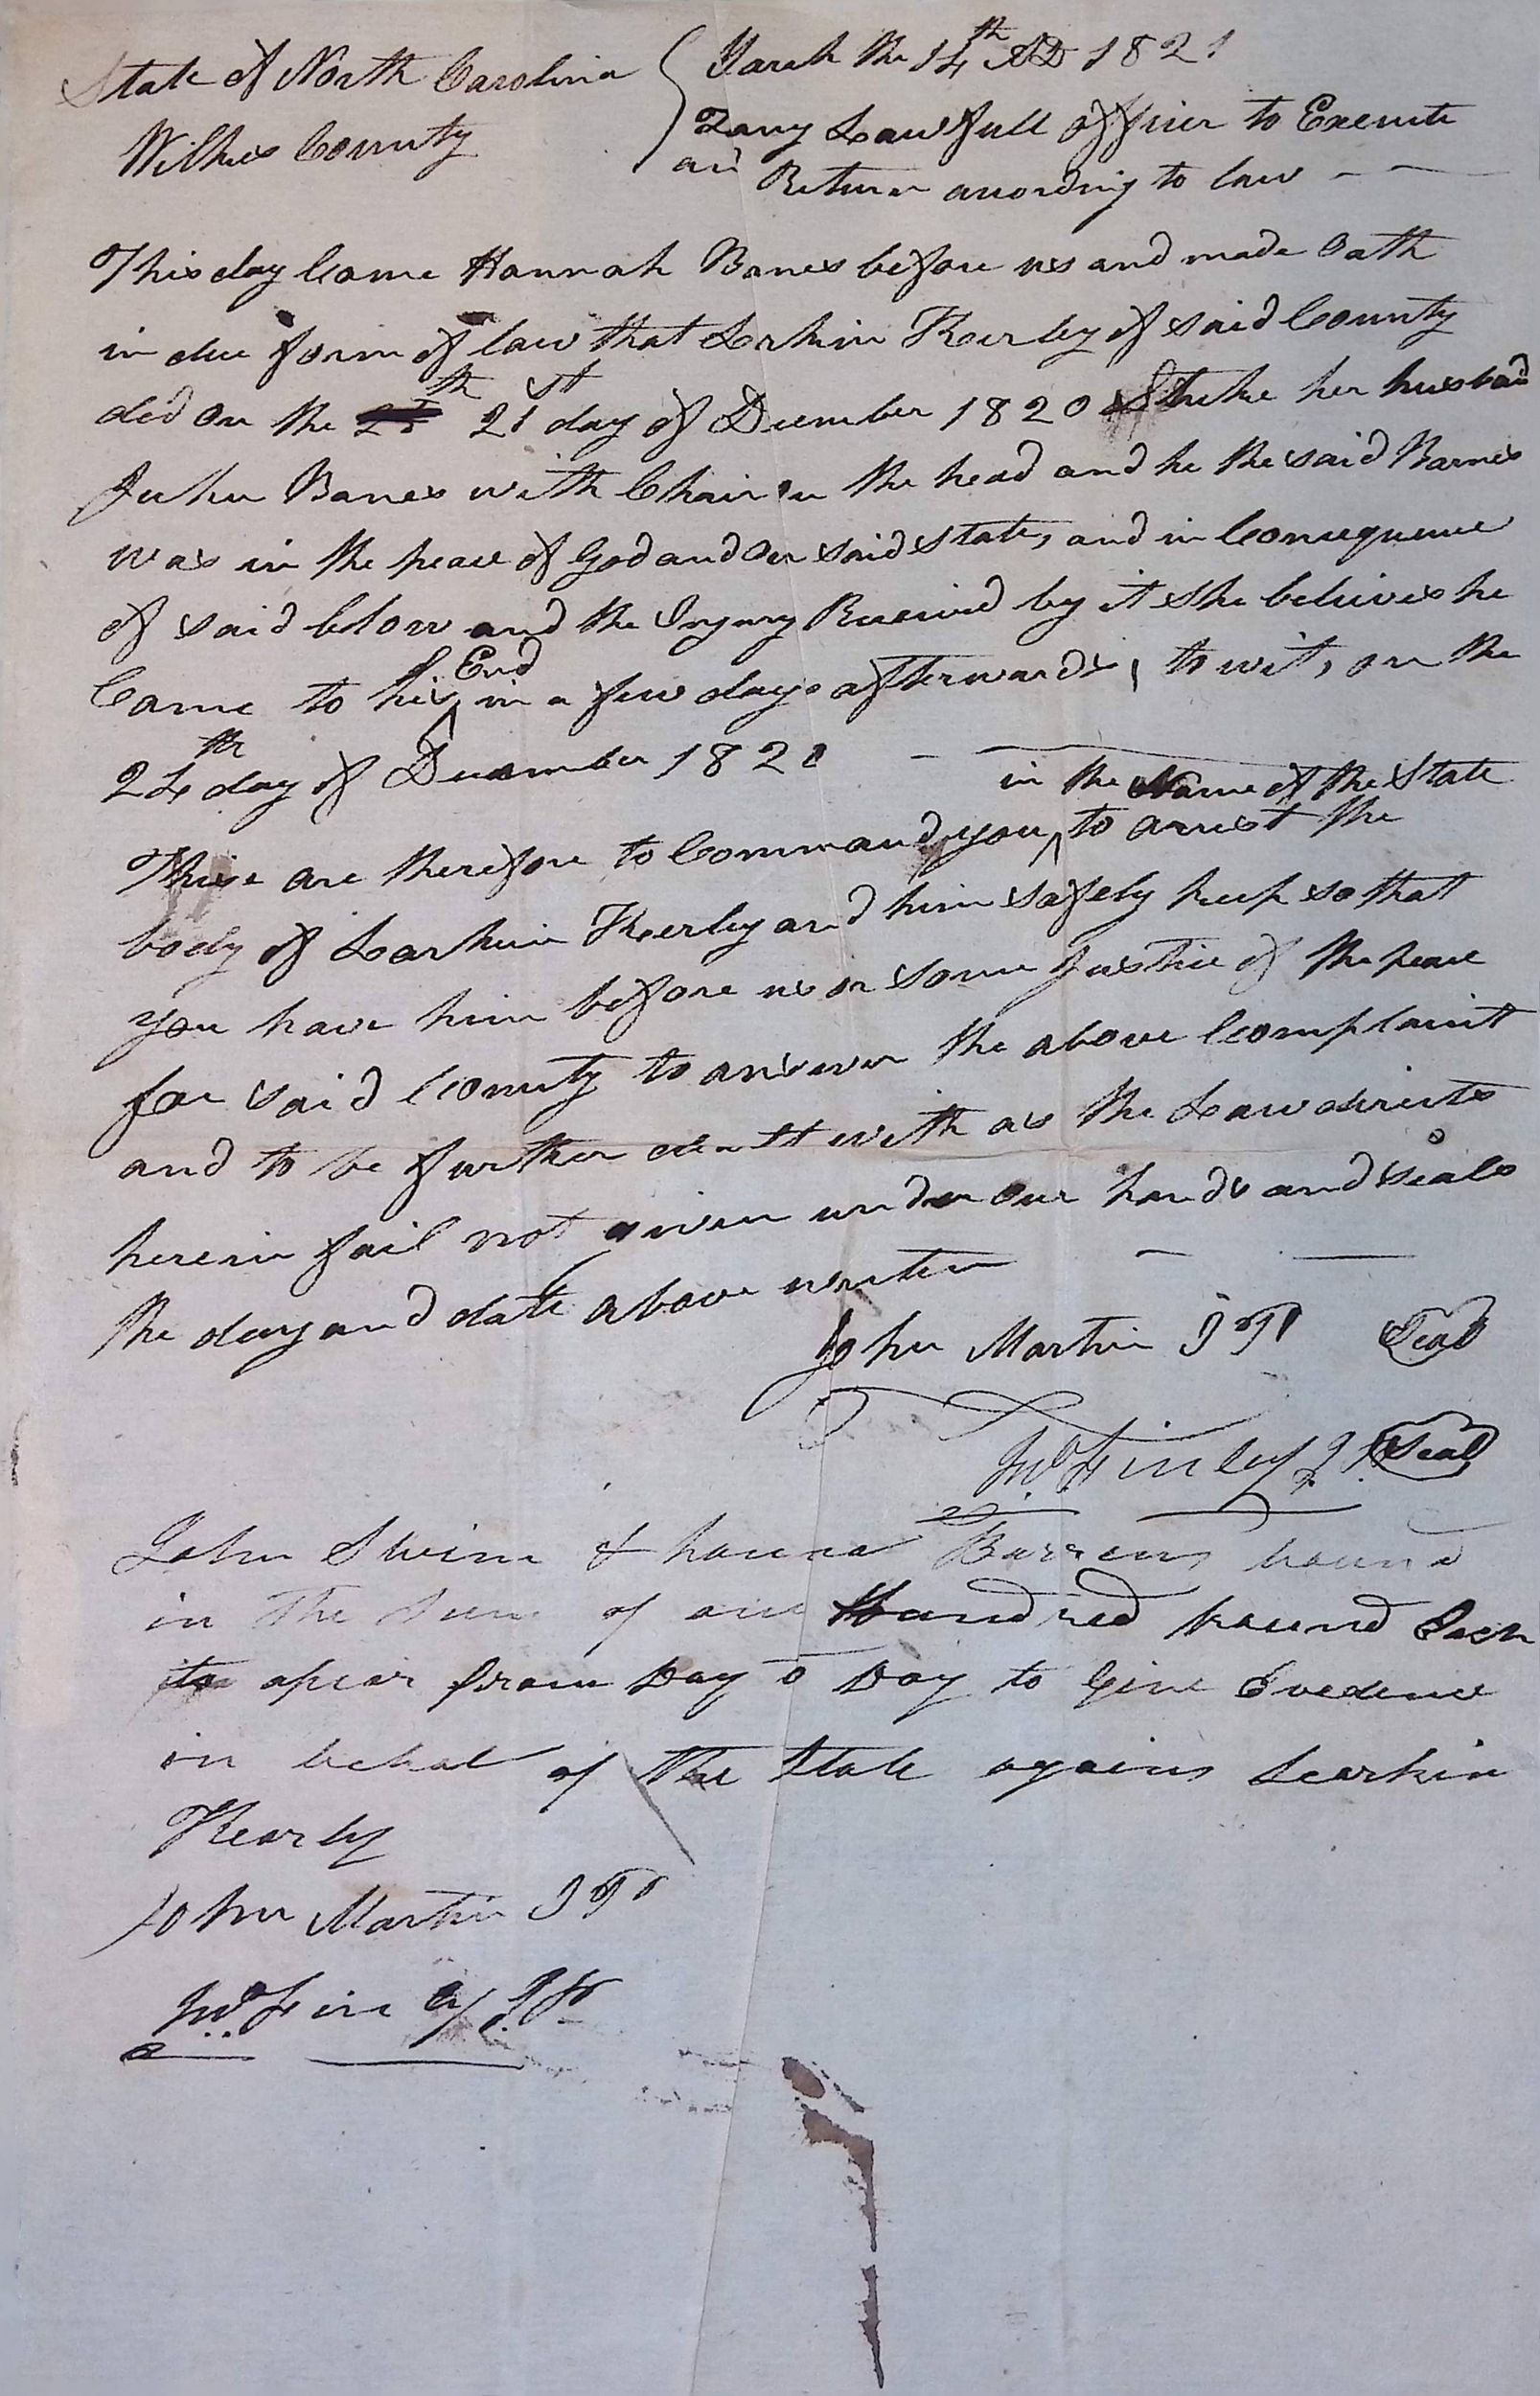 State of North Carolina
Wilkes County
March the 14th AD 1821
To any Lawfull officer to Execute
and Return according to law
This day Came Hannah Banes before us and made Oath
in due form of law that Larkin Kerley of said County
did on the 21st day of December 1820 Strike her husband
John Banes with Chair on the head and he the said Barnes
was in the peace of God and Our said State, and in Consequence
of said blow and the Injury Received by it she believes he
Came to his End in a few days afterwards, to wit, on the
24th day of December 1820
These are therefore to Command you in the Name of the State to arrest the
body of Larkin Kerley and him safely keep so that
you have him before us or some Justice of the peace
for said County to answer the above Complaint
and to be further dealt with as the Law directs
herein fail not given under our hands and seals
the day and date above writen
John Martin JP Seal
Wm Finley J.P. Seal
John Swim & hanna bound
in The Sum of one Hundred pound Each
to apear from Day to Day to Give Evedence
in behalf of The State agains Learkin
Kearly
John Martin JP
Wm Finley J.P.